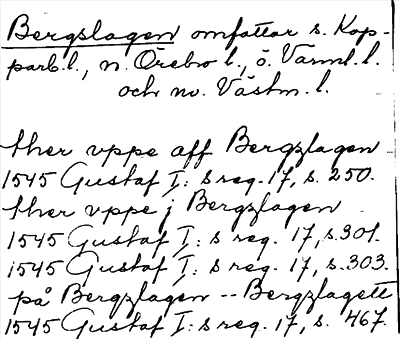 Bergslagen omfattar s. Kop-
parb.l., n. Örebro l., ö. Värml. l.
och nv. Västm. l.
ther vppe aff Bergzlagen
1545 Gustaf I: s reg. 17, s. 250.
ther vppe j Bergzlagen
1545 Gustaf I: s reg. 17, s. 301.
1545 Gustaf I: s reg. 17, s. 303.
på Bergzlagen -- Bergzlagett
1545 Gustaf I: s reg. 17, s. 467.